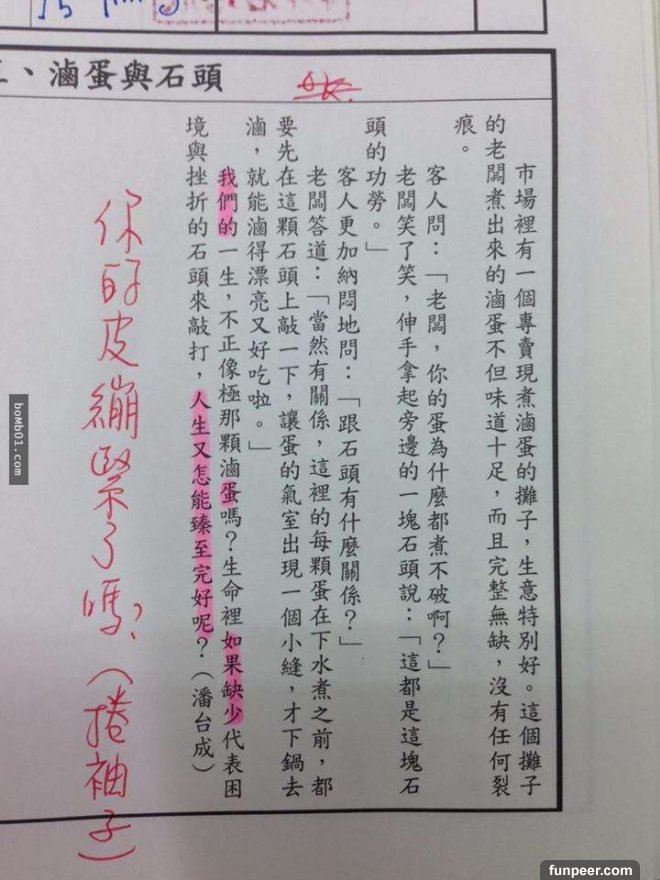 、滷蛋與石頭
市場裡有一個專賣現煮滷蛋的攤子，生意特別好。這個攤子
的老闆煮出來的滷蛋不但味道十足，而且完整無缺，沒有任何裂
痕。
客人問：「老闆，你的蛋為什麼都煮不破啊？」
老闆笑了笑，伸手拿起旁邊的一塊石頭說：「這都是這塊石
頭的功勞。」
客人更加納悶地問：「跟石頭有什麼關係？」
老闆答道：「當然有關係，這裡的每顆蛋在下水煮之前，都
要先在這顆石頭上敲一下，讓蛋的氣室出現一個小縫，才下鍋去
滷，就能滷得漂亮又好吃啦。」
我們的一生，不正像極那顆滷蛋嗎？生命裡如果缺少代表困
境與挫折的石頭來敲打，人生又怎能臻至完好呢？（潘台成）
你的皮繃緊了嗎？（捲袖子）
boMb01.com
funpeer.com